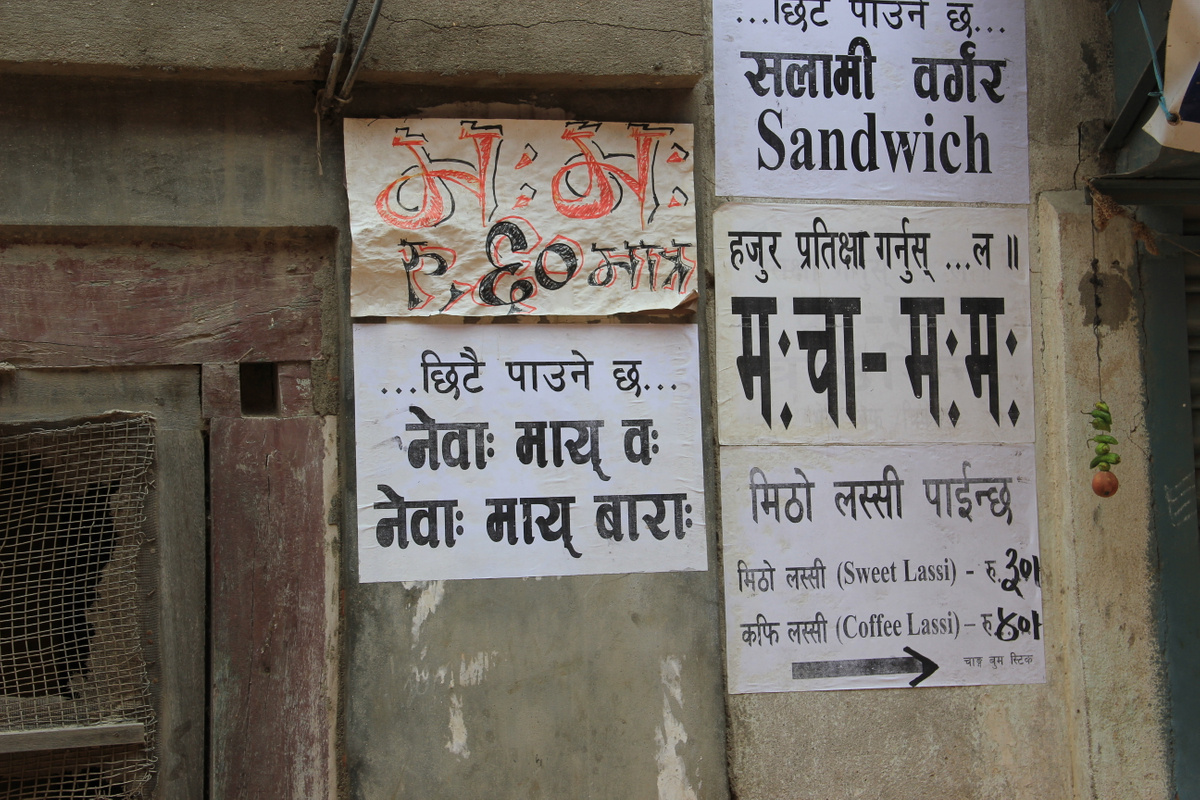 मः मः
रु. ६० मात्र
...छिटै पाउने छ...
नेवाः माय् वः
नेवाः माय् बाराः
...छिटै पाउने छ...
सलामी वर्गर
Sandwich
हजुर प्रतिक्षा गर्नुस् ...ल ॥
मःचा-मःमः
मिठो लस्सी पाईन्छ
मिठो लस्सी (Sweet Lassi) - रु. ३०।
कफि लस्सी (Coffee Lassi) – रु ४०।
चाङ्ग वुम स्टिक